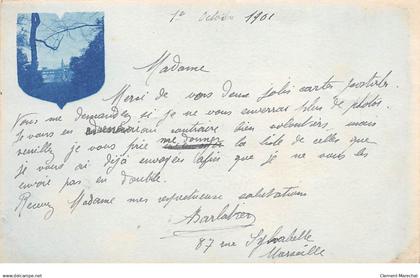 1er Octobre 1901
Madame
Merci de vos deux jolies cartes postales.
Vous me demandez si je ne vous enverrai plus de photos.
Je vous en au contraire bien volontiers, mais
veuillez je vous prie me donner la liste de celles que
je vous ai déjà envoyées afin que je ne vous les
envoie pas en double.
Recevez Madame mes respectueuses salutations
87 rue Sylvabelle
Marseille
delcampe.net
Clement-Marechal